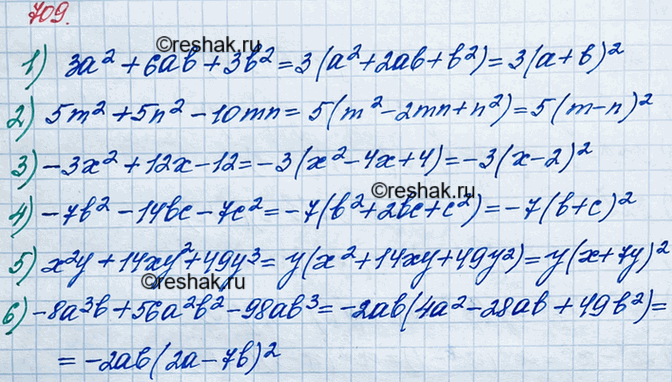 709.
©reshak.ru
1) 3a² + 6ab + 3b² = 3(a² + 2ab + b²) = 3(a + b)²
2) 5m² + 5n² - 10mn = 5(m² - 2mn + n²) = 5(m - n)²
3) -3x² + 12x - 12 = -3(x² - 4x + 4) = -3(x - 2)²
©reshak.ru
4) -7b² - 14bc - 7c² = -7(b² + 2bc + c²) = -7(b + c)²
5) x²y + 14xy² + 49y³ = y(x² + 14xy + 49y²) = y(x + 7y)²
©reshak.ru
6) -8a³b + 56a²b² - 98ab³ = -2ab(4a² - 28ab + 49b²) =
= -2ab(2a - 7b)²